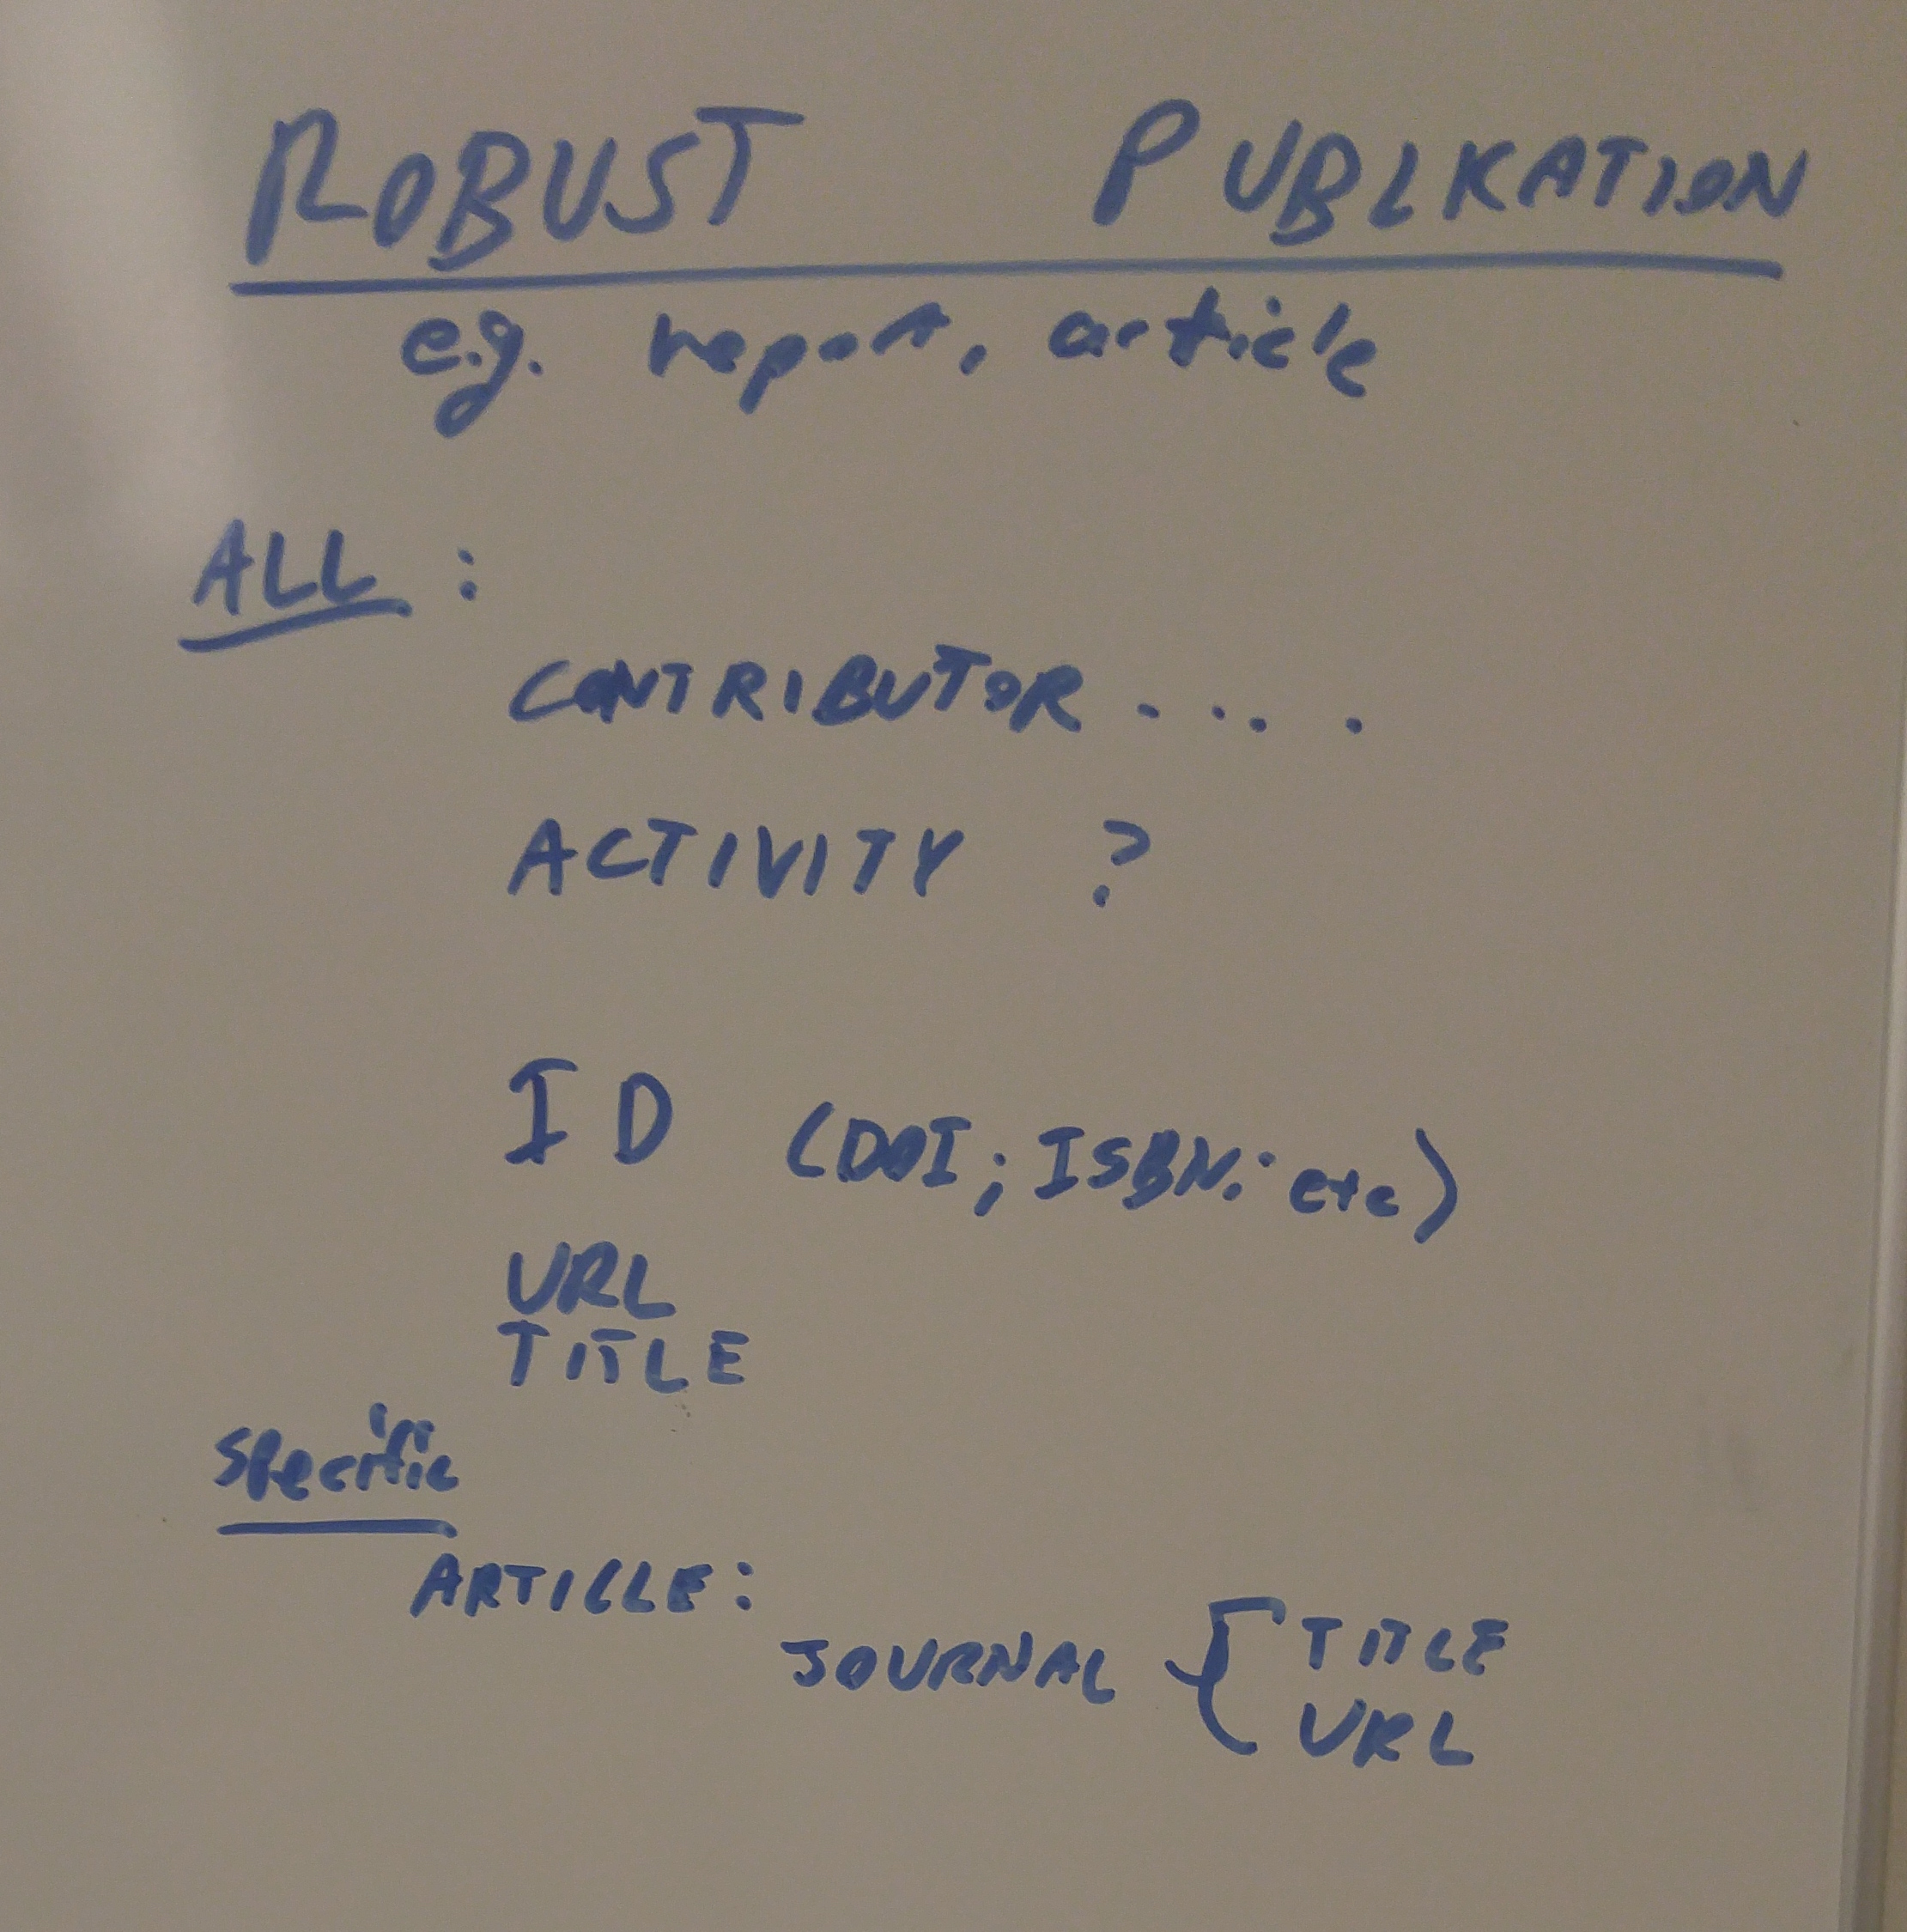 ROBUST PUBLIKATION
e.g. report, article
ALL :
CONTRIBUTOR . . . . .
ACTIVITY ?
ID (DOI; ISBN: etc)
URL
TITLE
specific
ARTICLE:
JOURNAL { TITLE
URL